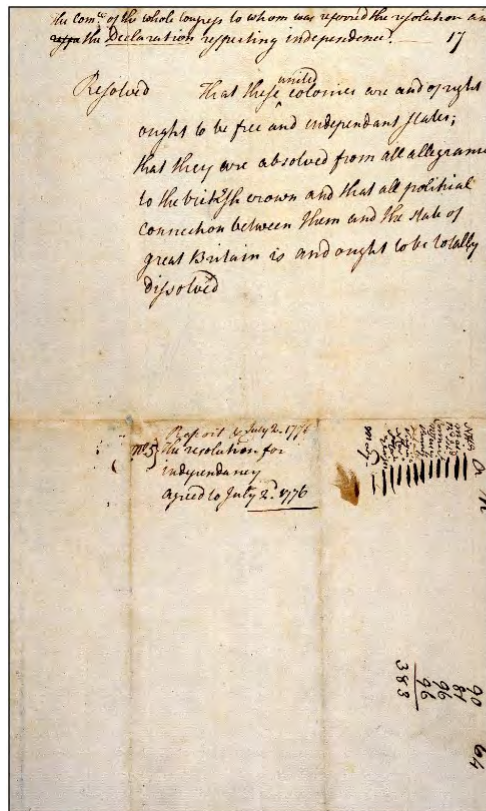 the Com.ee of the whole Congress to whom was referred the resolution an
the Declaration respecting independence. 17
Resolved That these united colonies are and of right
ought to be free and independant states;
that they are absolved from all allegiance
to the british crown and that all political
connection between them and the state of
great Britain is and ought to be totally
dissolved
Report July 2. 1776
No 5 The resolution for
independancy
agreed to July 2d. 1776
90
81
96
96
383
64